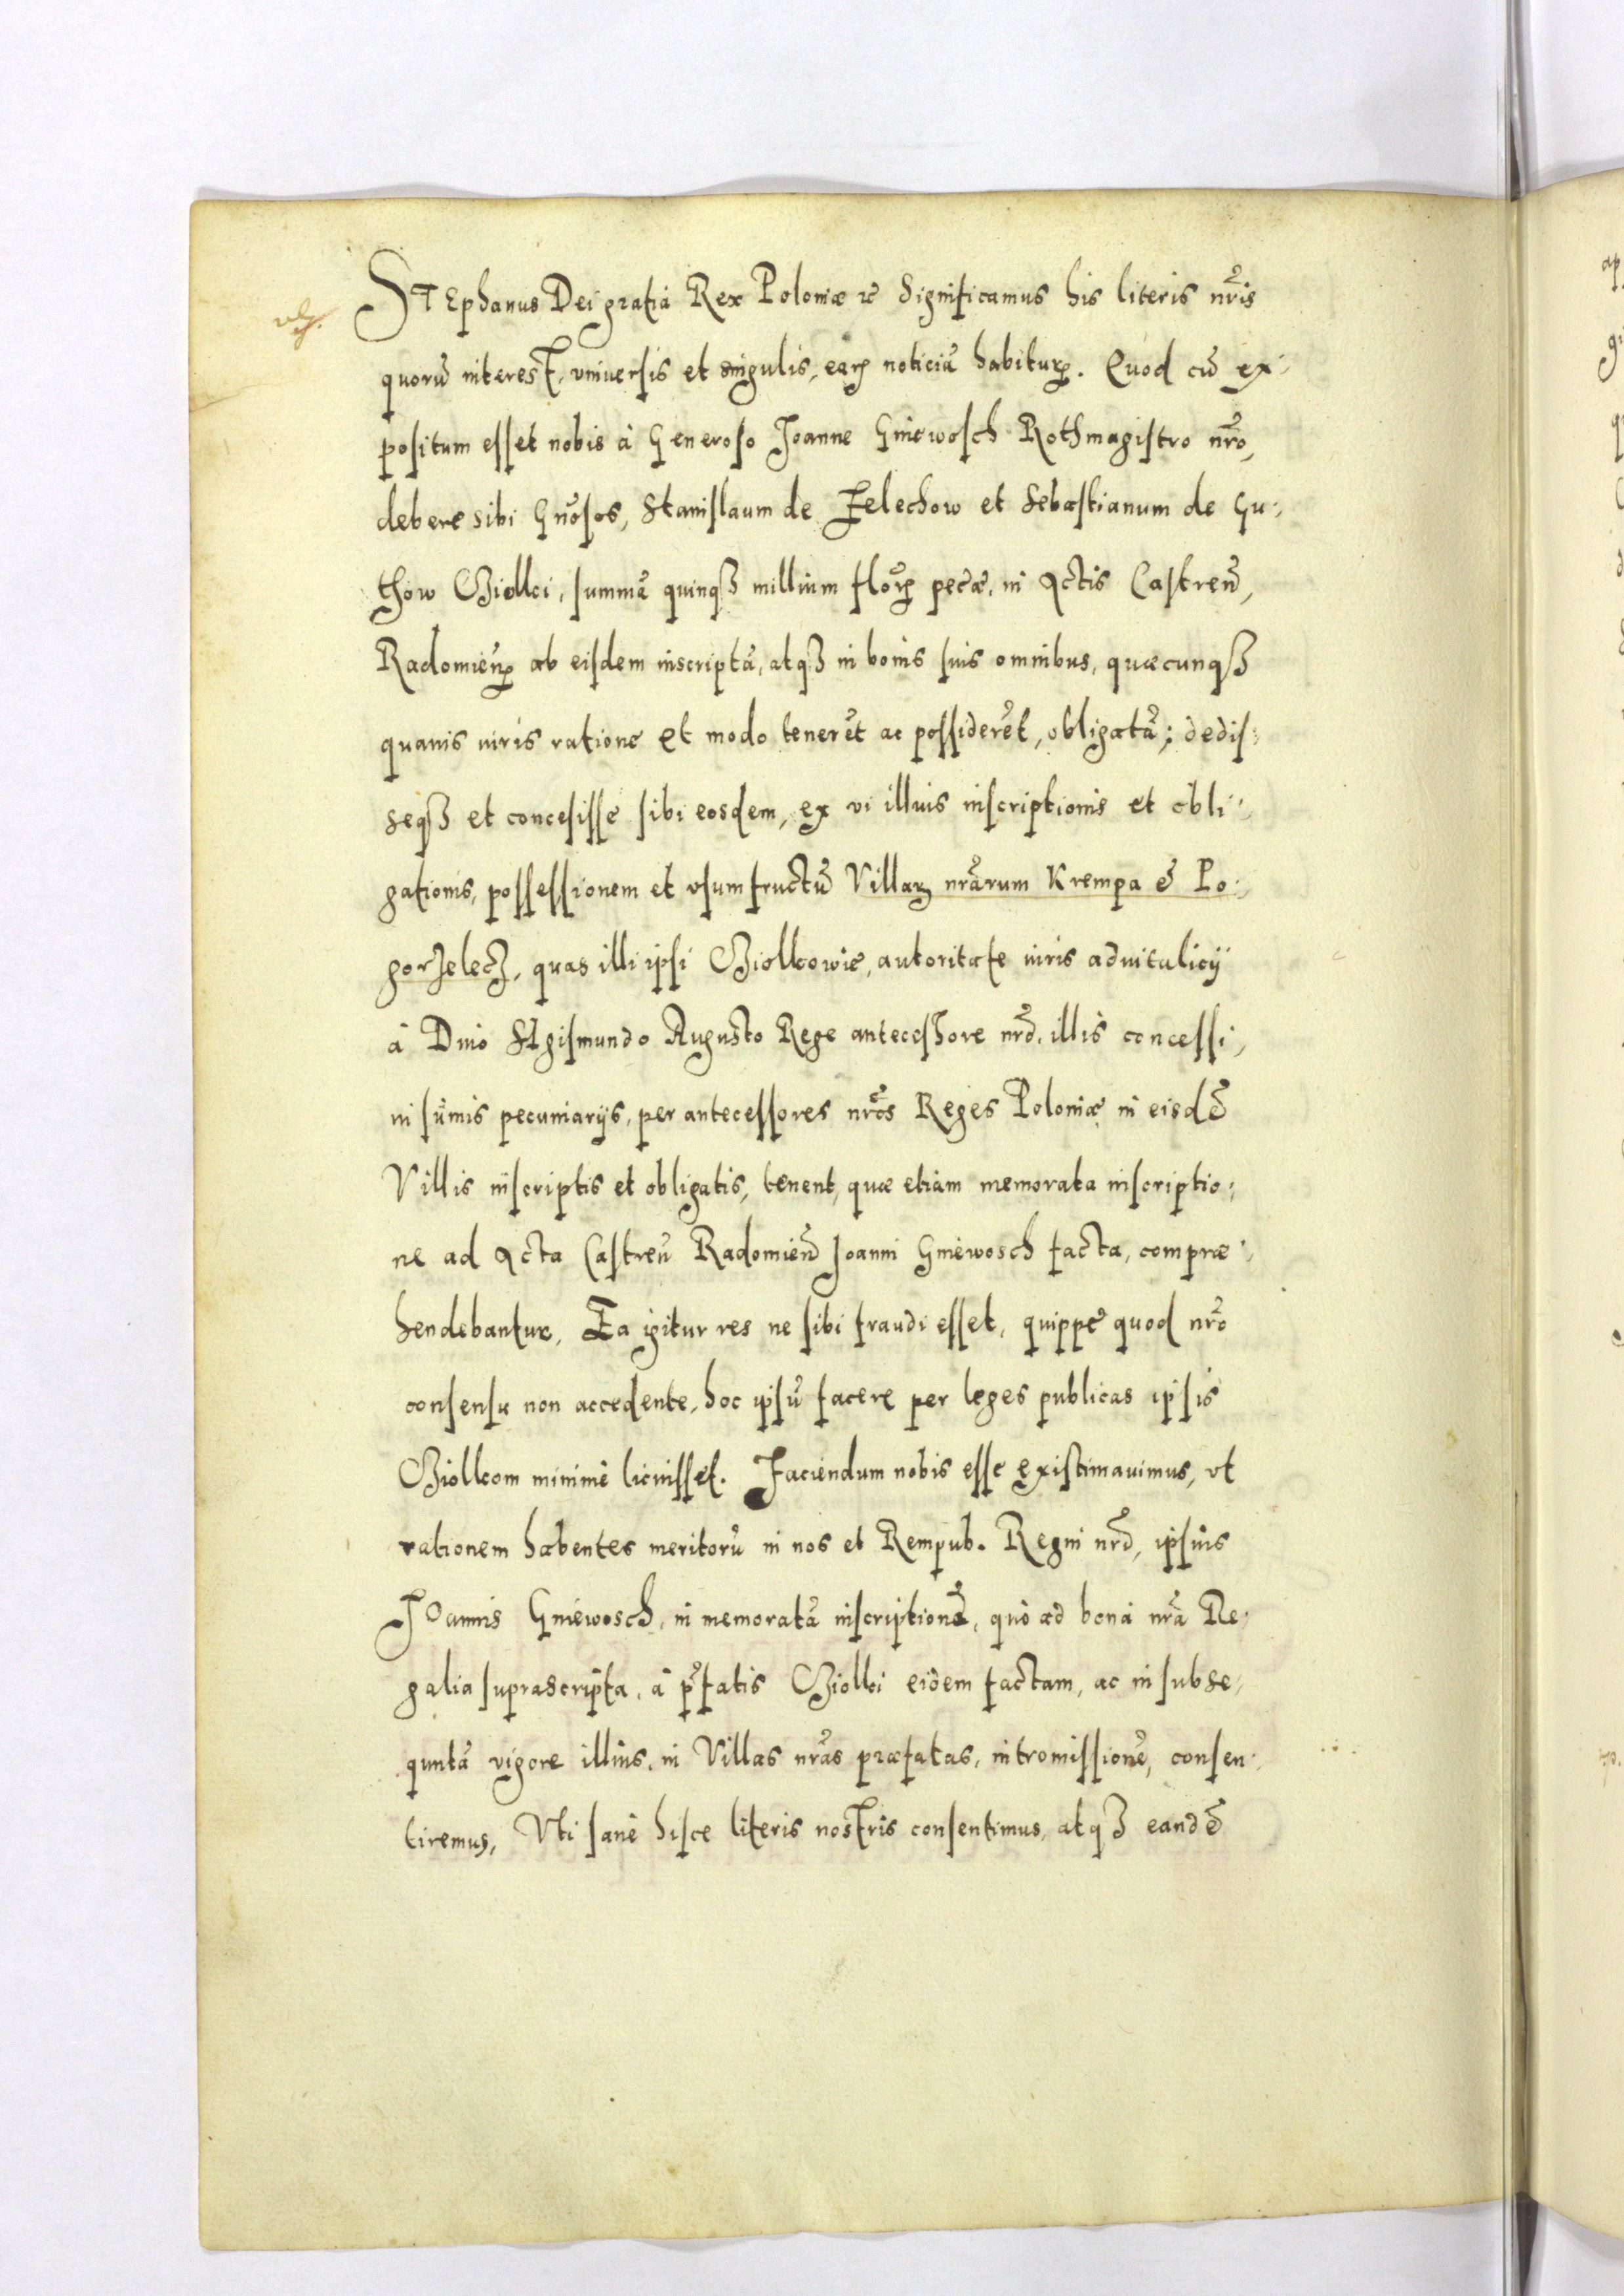 STEphanus Dei gratia Rex Poloniæ &c Significamus his literis nr̃is
quorũ interest, vniuersis et singulis, earꝝ noticiã habiturꝝ. Quod cũ ex-
positum esset nobis à Generoso Joanne Gniewosch Rothmagistro nr̃o,
debere sibi Gñosos, Stanislaum de Zelechow et Sebastianum de Gu-
thow Ciollci, summã quinqꝫ millium florꝝ pecæ, in Actis Castreñ,
Radomieñ ab eisdem inscriptã, atqꝫ in bonis suis omnibus, quæcunqꝫ
quauis iuris ratione et modo tenerẽt ac possiderẽt, obligatã; dedis-
seqꝫ et concesisse sibi eosdem, ex vi illius inscriptionis et obli-
gationis, possessionem et vsumfructũ Villaꝝ nr̃arum Krempa & Po-
gorzelecz, quas illi ipsi Ciolkowie, autoritate iuris aduitalicij
à Diuo Sigismundo Augusto Rege antecessore nr̃o, illis concessi,
in sũmis pecuniarijs, per antecessores nr̃os Reges Poloniæ in eisdẽ
Villis inscriptis et obligatis, tenent, quæ etiam memorata inscriptio-
ne ad Acta Castreñ Radomieñ Joanni Gniewosch facta, compræ-
hendebantur, Ea igitur res ne sibi fraudi esset, quippe quod nr̃o
consensu non accedente, hoc ipsũ facere per leges publicas ipsis
Ciolkom minimè licuisset. Faciendum nobis esse existimauimus, vt
rationem habentes meritorũ in nos et Rempub. Regni nr̃i, ipsius
Joannis Gniewosch, in memoratã inscriptionẽ, quò ad bona nr̃a Re-
galia suprascripta, à p̃fatis Ciolki eidem factam, ac in subse-
quutã vigore illius, in Villas nr̃as præfatas, intromissionẽ, consen-
tiremus, Vti sanè hisce literis nostris consentimus, atqꝫ eandẽ